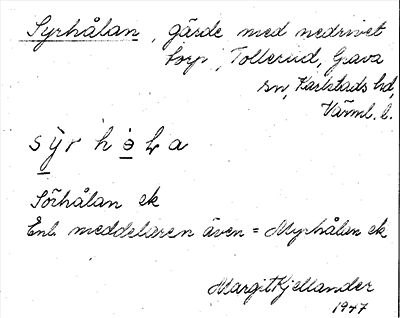 Syrhålan, gärde med nedrivet
torp, Tollerud, Grava
sn, Karlstads hd,
Värml. l.
sy̌r hɵɫa
Sörhålan ek
Enl. meddelaren även = Myrhålan ek
Margit Kjellander
1947